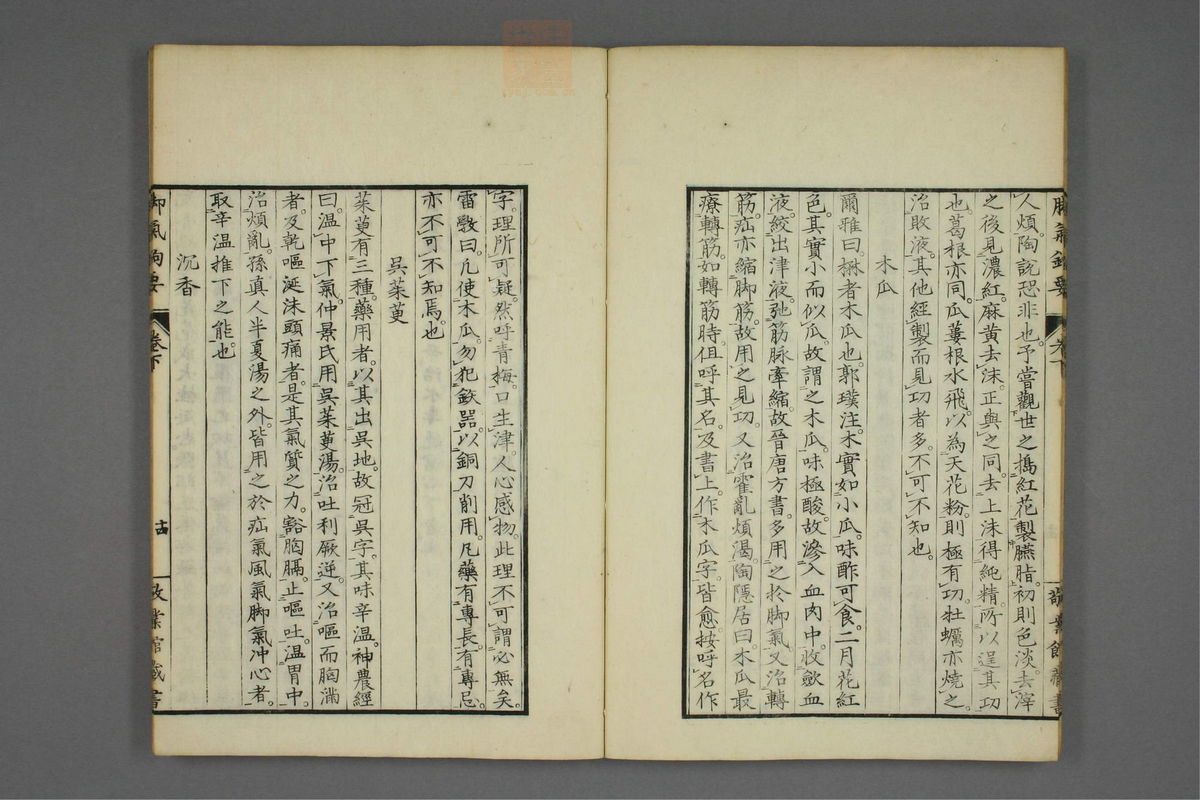 人煩。陶說恐非也。予嘗觀世之搗紅花製臙脂。初則色淡。去滓
之後見濃紅。麻黃去沫。正與之同。去上沫得純精。所以逞其功
也。葛根亦同。瓜蔞根水飛。以為天花粉。則極有功。牡蠣亦燒之。
治敗液。其他經製而見功者多。不可不知也。
木瓜
爾雅曰。楙者木瓜也。郭璞注。木實如小瓜。味酢可食。二月花紅
色。其實小而似瓜。故謂之木瓜。味極酸。故滲入血肉中。收斂血
液。絞出津液。弛筋脉牽縮。故晉唐方書。多用之於脚氣。又治轉
筋。疝亦縮脚筋。故用之見功。又治霍亂煩渴。陶隱居曰。木瓜最
療轉筋。如轉筋時。但呼其名。及書上作木瓜字。皆愈。按呼名作
字。理所可疑。然呼青梅。口生津。人心感物。此理不可謂必無矣。
雷斅曰。凡使木瓜。勿犯鉄器。以銅刀削用。凡藥有專長。有專忌。
亦不可不知焉也
吳茱萸
茱萸有三種。藥用者。以其出吳地。故冠吳字。其味辛溫。神農經
曰。溫中下氣。仲景氏用吳茱萸湯。治吐利厥逆。又治嘔而胸滿
者。及乾嘔涎沫頭痛者。是其氣質之力。豁胸膈。止嘔吐。溫胃中。
治煩亂。孫真人半夏湯之外。皆用之於疝氣風氣脚氣冲心者。
取辛溫推下之能也。
沉香
脚氣鉤要
卷下
十四